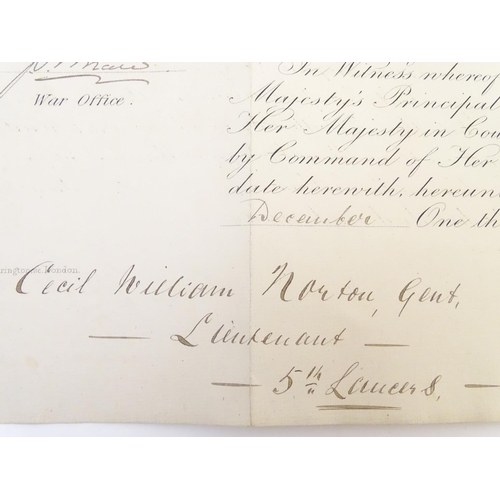 In Witness whereof
Majesty's Principal
War Office.
Her Majesty in Cou
by Command of Her
date herewith, hereun
December One th
London.
Cecil William Norton, Gent,
— Lieutenant —
— 5th Lancers, —